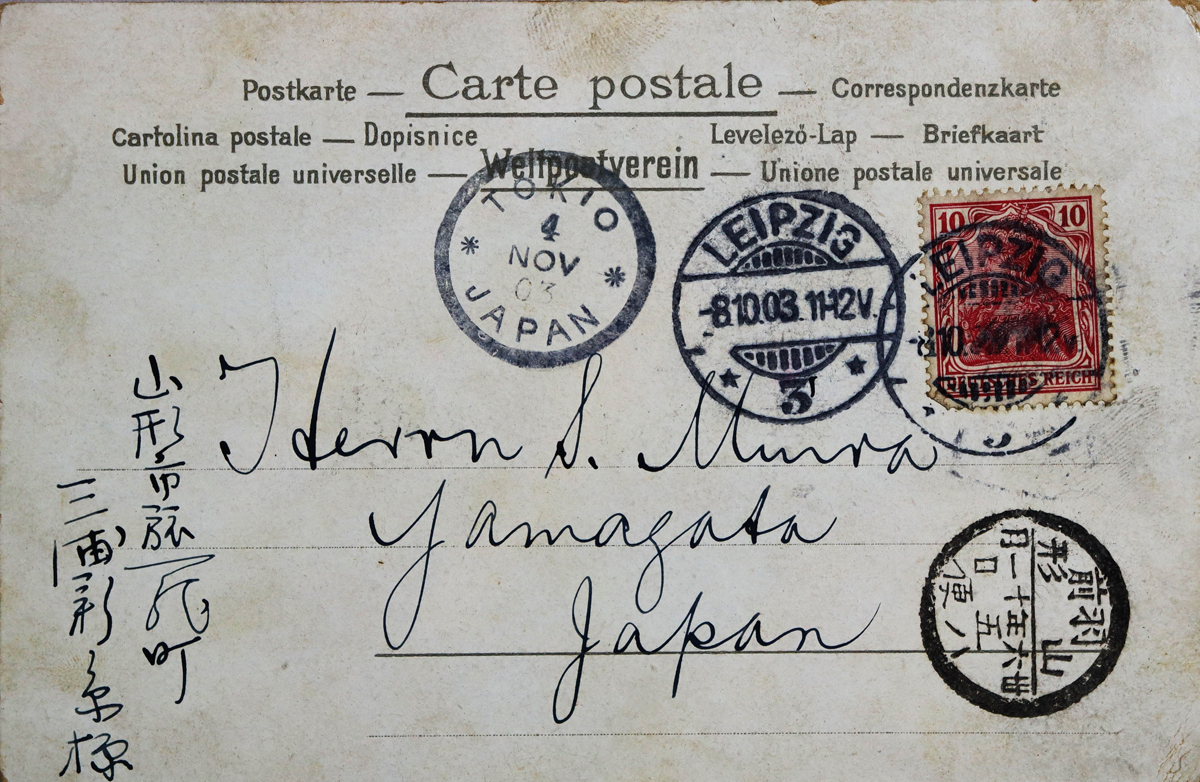 Postkarte — Carte postale — Correspondenzkarte
Cartolina postale — Dopisnice
Levelező-Lap — Briefkaart
Union postale universelle — Weltpostverein — Unione postale universale
TOKIO
4
NOV
03
JAPAN
LEIPZIG
-8.10.03. 11-12V.
3
10 10
DEUTSCHES REICH
LEIPZIG
Herrn S. Miura
Yamagata
Japan
山形市旅篭町
三浦 様
羽前
山形
卅六年十一月
五日
八便